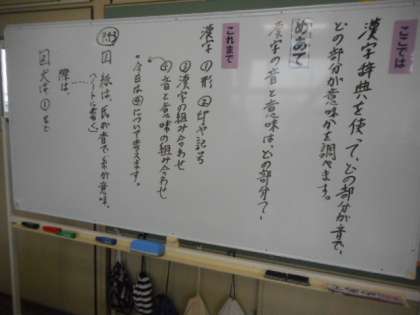 ここでは
漢字辞典を使って、どの部分が音で、
どの部分が意味かを調べます。
めあて
漢字の音と意味は、どの部分で、
これまで
漢字 ①形 ②印や記号
③漢字の組み合わせ
④音と意味の組み合わせ
今日は④について考えます。
紙は、氏が音で、糸が意味。
ノートに書く
①